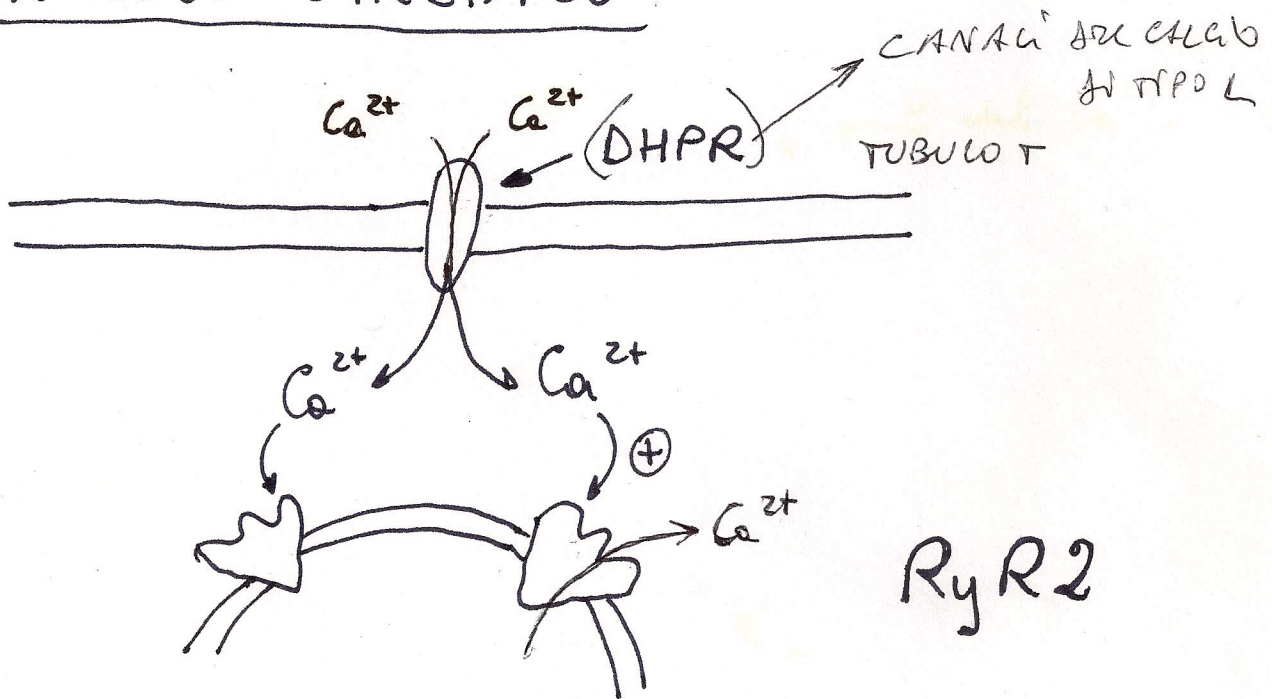 CANALI DEL CALCIO
DI TIPO L
Ca²⁺ Ca²⁺ (DHPR)
TUBULO T
Ca²⁺ Ca²⁺
+
Ca²⁺
RyR2